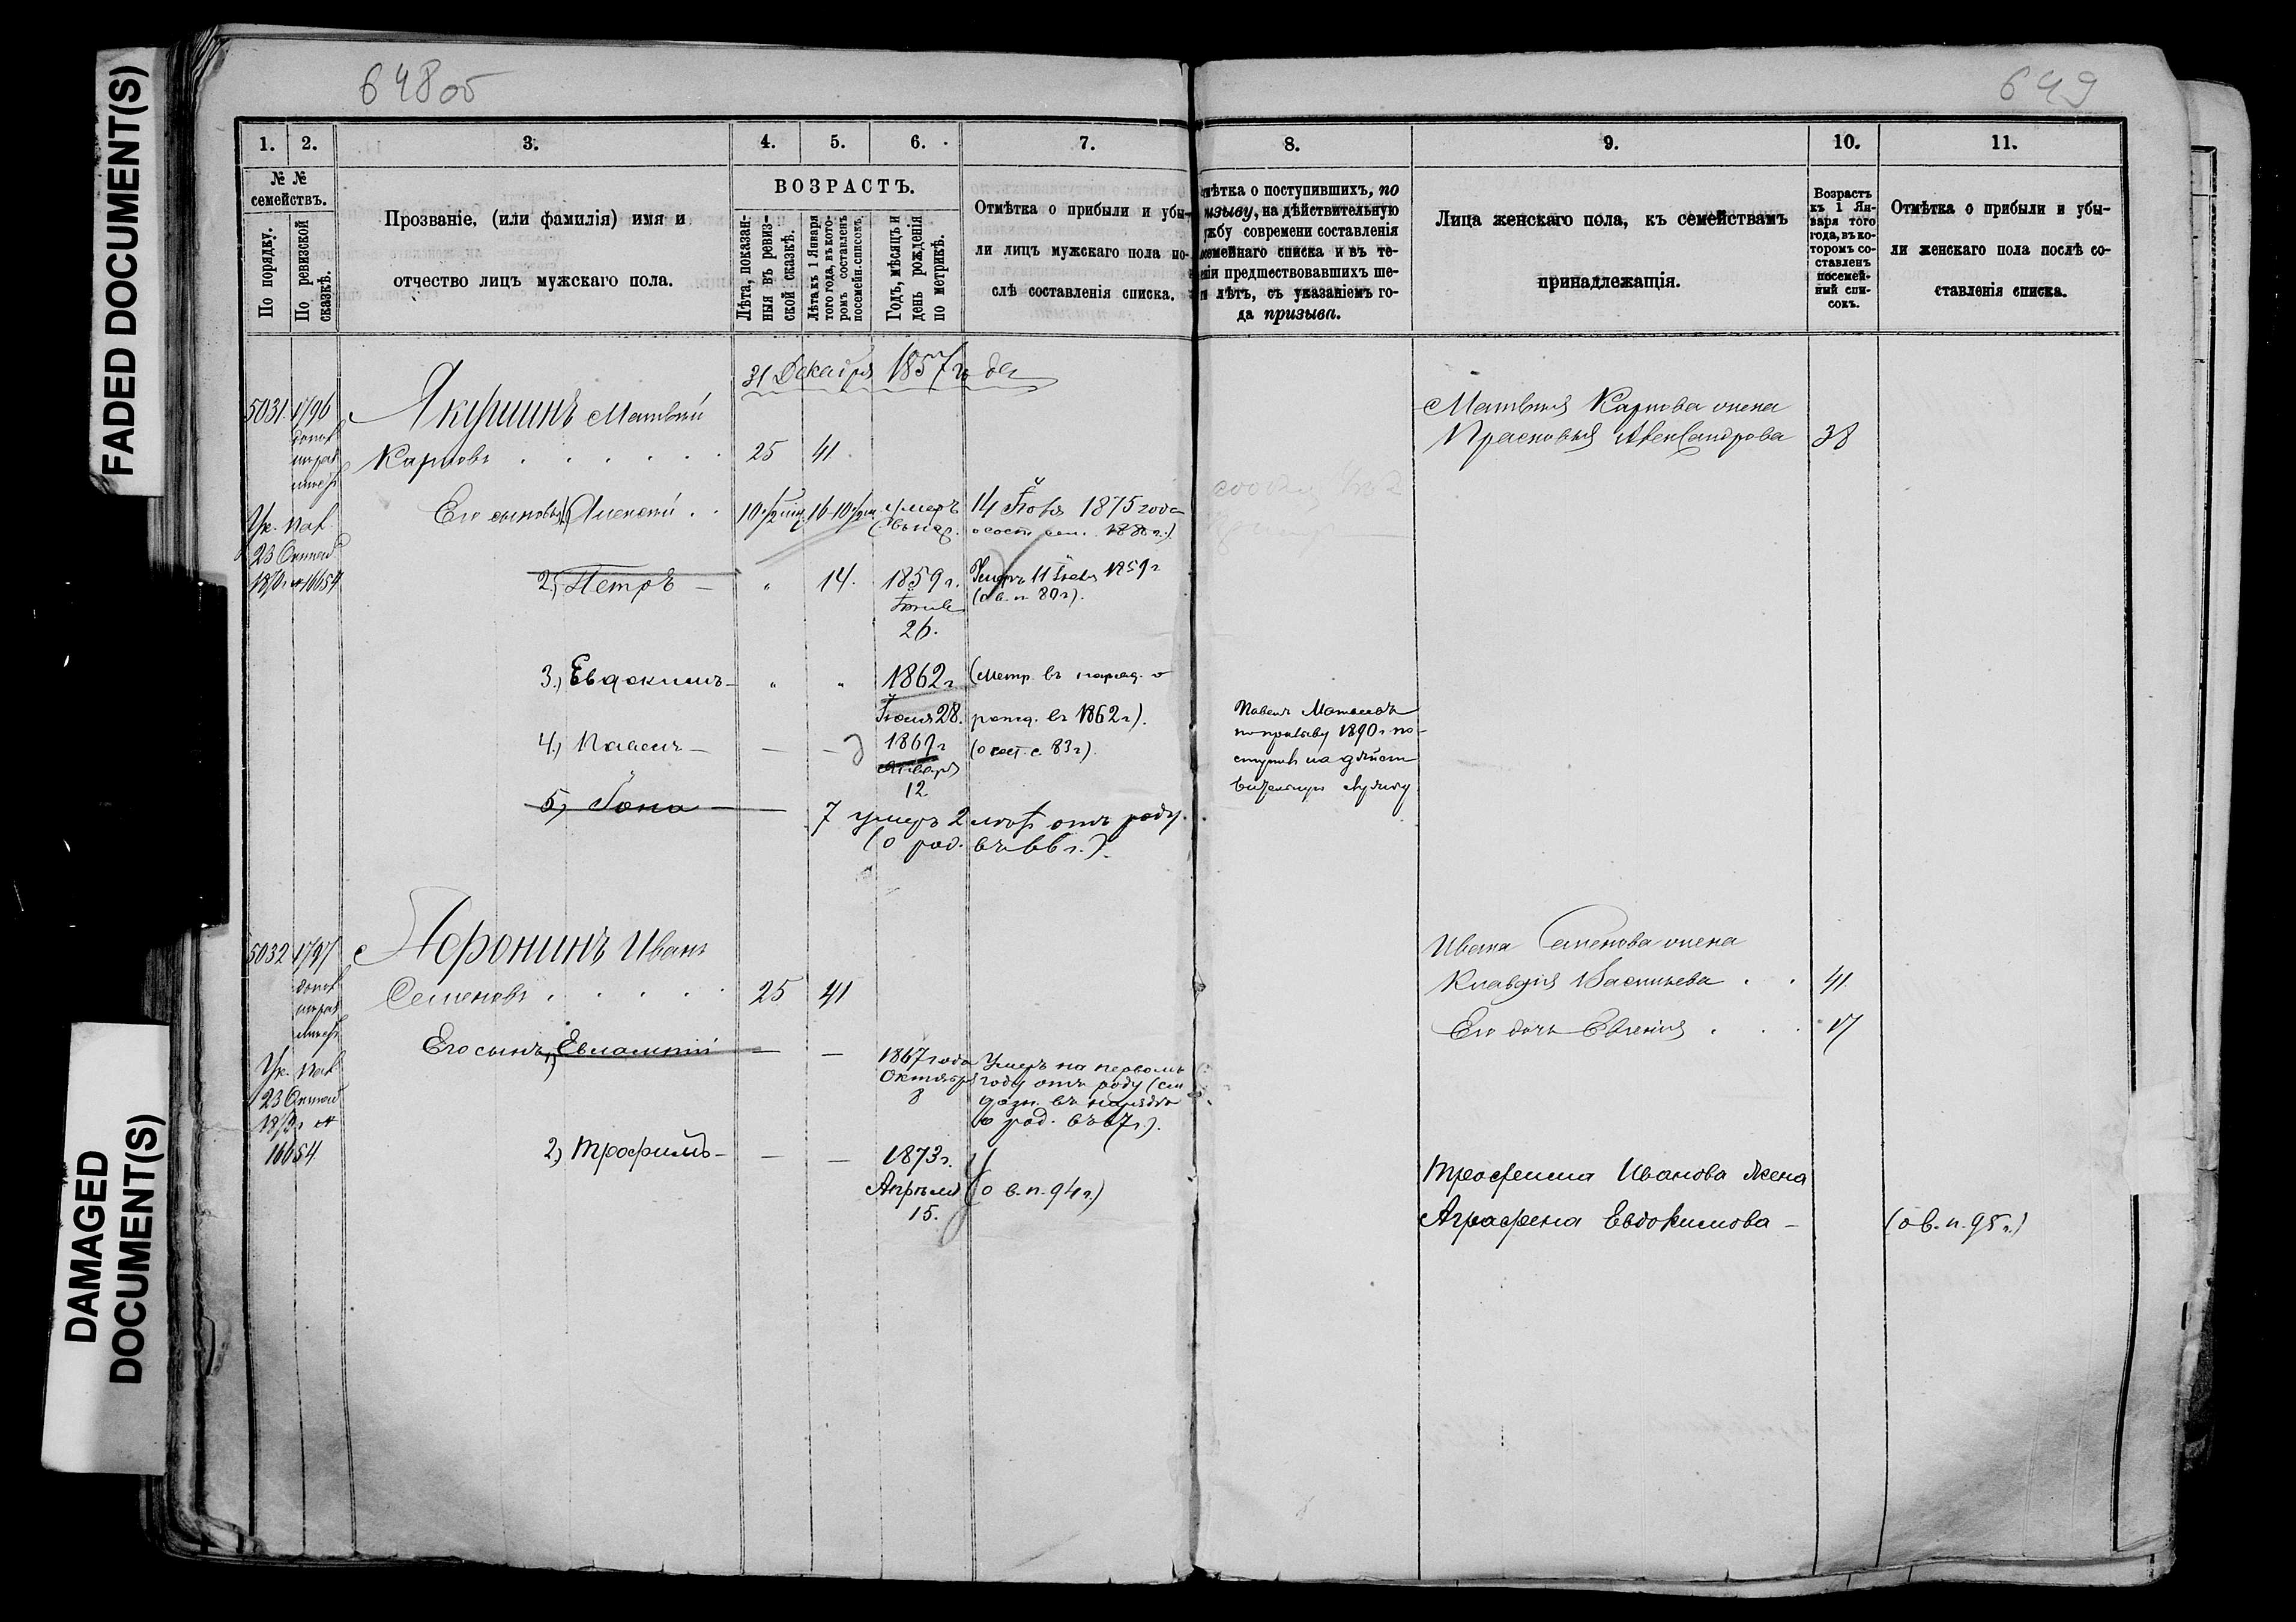 FADED DOCUMENT(S)
DAMAGED
DOCUMENT(S)
648об
649
1.
2.
3.
4.
5.
6.
7.
8.
9.
10.
11.
№ №
семействъ.
По порядку.
По ревизской
сказкѣ.
Прозваніе, (или фамилія) имя и
отчество лицъ мужскаго пола.
ВОЗРАСТЪ.
Лѣта, показан-
ныя въ ревиз-
ской сказкѣ.
Лѣта къ 1 Января
того года, въ кото-
ромъ составленъ
посемейн. списокъ.
Годъ, мѣсяцъ и
день рожденія
по метрикѣ.
Отмѣтка о прибыли и убы-
ли лицъ мужскаго пола по-
слѣ составленія списка.
мѣтка о поступившихъ, по
изыву, на дѣйствительную
жбу современи составленія
семейнаго списка и въ те-
ніи предшествовавшихъ ше-
и лѣтъ, съ указаніемъ го-
да призыва.
Лица женскаго пола, къ семействамъ
принадлежащія.
Возрастъ
къ 1 Ян-
варя того
года, въ ко-
торомъ со-
ставленъ
посемей-
ный спи-
сокъ.
Отмѣтка о прибыли и убы-
ли женскаго пола послѣ со-
ставленія списка.
31 Декабря 1857 года
5031 1796
Якушинъ Матвѣй
Карповъ 25 41
Его сыновья Алексѣй 10 1/2 16 умеръ 14 Іюля 1875 года
Ук. Пал
23 Октяб
16654
2) Петръ — „ 14. 1859 г. Умеръ 11 1859 г
(о в. п. 80 г).
26.
3.) Евдокимъ — „ „ 1862 г. (метр. въ наряд. о
Іюля 28. рожд. въ 1862 г).
4.) Павелъ — — — 1869 г (о сост. с. 83 г).
Января
12
5) Іона — 7 умеръ 2 лѣтъ отъ роду.
(о род. въ 66 г.).
Павелъ Матвеевъ
по призыву 1890 г. по-
ступилъ на дѣйст
вительную службу
Матвѣя Карпова жена
Прасковья Александрова 38
5032 1797
Афонинъ Иванъ
Семеновъ 25 41
Ук. Пал
23 Октяб
16654
Его сынъ 1) Евлампій — — 1867 года Умеръ на первомъ
Октября году отъ роду (см
8 дозн. въ нарядѣ
о род. въ 67 г.).
2) Трофимъ — — — 1873 г.
Апрѣля (о в. п. 94 г.)
15.
Ивана Семенова жена
Клавдія Васильева 41
Его дочь Евгенія 17
Трофима Иванова жена
Аграфена Евдокимова — (о в. п. 95 г.)